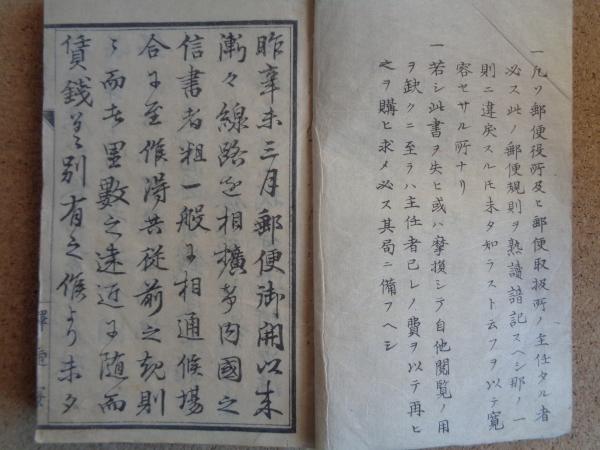 一凡ソ郵便役所及ヒ郵便取扱所ノ主任タル者
必ス此ノ郵便規則ヲ熟讀諳記スヘシ那ノ一
則ニ違戻スル𪜈未タ知ラスト云フヲ以テ寛
容セサル所ナリ
一若シ此書ヲ失ヒ或ハ摩損シテ自他閲覧ノ用
ヲ缺クニ至ラハ主任者己レノ費ヲ以テ再ヒ
之ヲ購ヒ求メ必ス其局ニ備フヘシ
昨辛未三月郵便御開以来
漸々線路を相擴め内國之
信書者粗一般に相通候場
合に至候得共従前之規則
ニ而者里數之遠近に随而
賃錢差別有之候より未タ